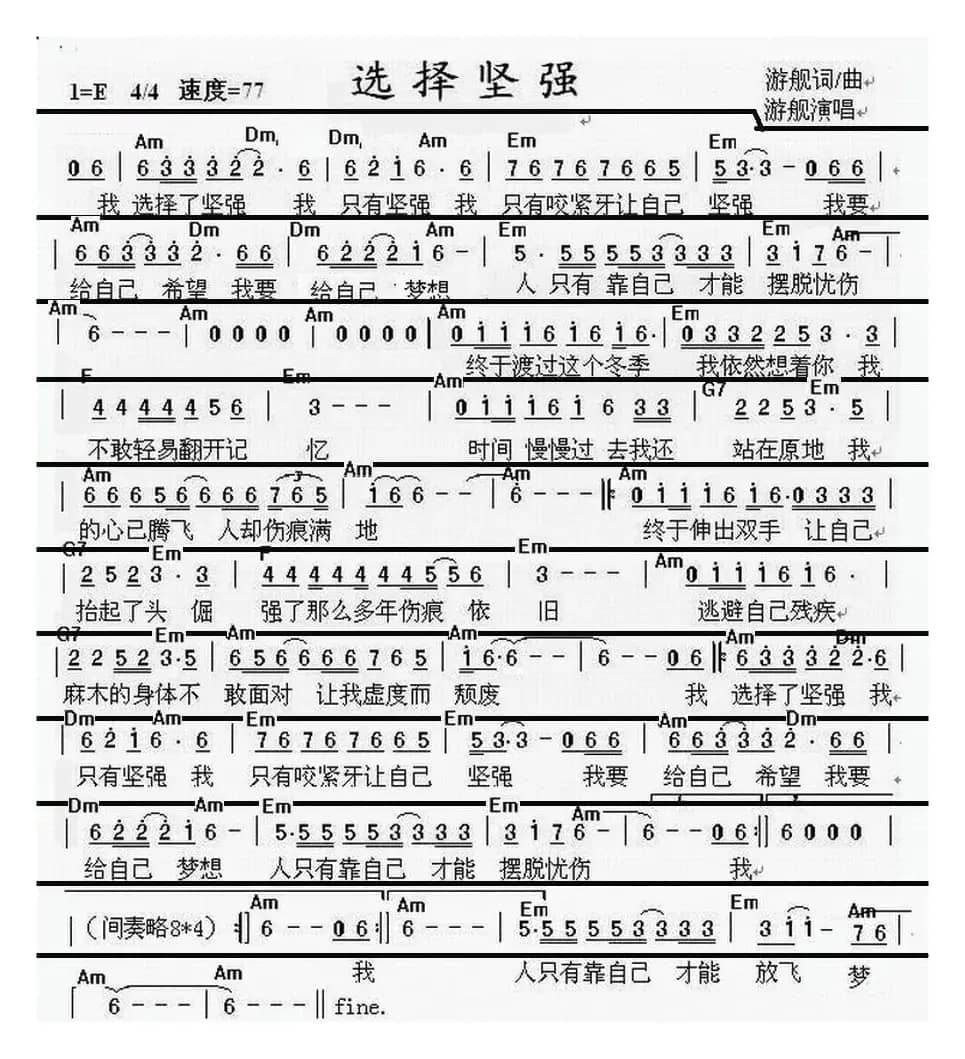 选择坚强
1=E 4/4 速度=77
游舰词/曲
游舰演唱
Am Dm, Dm, Am Em Em
0 6 | 6 3 3 3 2 2 · 6 | 6 2 i 6 · 6 | 7 6 7 6 7 6 6 5 | 5 3·3 - 0 6 6 |
我 选择了坚强 我 只有坚强 我 只有咬紧牙让自己 坚强 我要
Am Dm Dm Am Em Em Am
| 6 6 3 3 3 2 · 6 6 | 6 2 2 2 i 6 - | 5 · 5 5 5 5 3 3 3 3 | 3 i 7 6 - |
给自己 希望 我要 给自己 梦想 人 只有 靠自己 才能 摆脱忧伤
Am Am Am Am Em
| 6 - - - | 0 0 0 0 | 0 0 0 0 | 0 i i i 6 i 6 i 6· | 0 3 3 2 2 5 3 · 3 |
终于渡过这个冬季 我依然想着你 我
F Em Am G7 Em
| 4 4 4 4 4 5 6 | 3 - - - | 0 i i i 6 i 6 3 3 | 2 2 5 3 · 5 |
不敢轻易翻开记 忆 时间 慢慢过 去我还 站在原地 我
Am 3 Am Am Am
| 6 6 6 5 6 6 6 6 7 6 5 | i 6 6 - - | 6 - - - ‖: 0 i i i 6 i 6·0 3 3 3 |
的心已腾飞 人却伤痕满 地 终于伸出双手 让自己
G7 Em F Em Am
| 2 5 2 3 · 3 | 4 4 4 4 4 4 5 5 6 | 3 - - - | 0 i i i 6 i 6 · |
抬起了头 倔 强了那么多年伤痕 依 旧 逃避自己残疾
G7 Em Am Am Am Dm
| 2 2 5 2 3·5 | 6 5 6 6 6 6 7 6 5 | i 6·6 - - | 6 - - 0 6 ‖: 6 3 3 3 2 2·6 |
麻木的身体不 敢面对 让我虚度而 颓废 我 选择了坚强 我
Dm Am Em Em Am Dm
| 6 2 i 6 · 6 | 7 6 7 6 7 6 6 5 | 5 3·3 - 0 6 6 | 6 6 3 3 3 2 · 6 6 |
只有坚强 我 只有咬紧牙让自己 坚强 我要 给自己 希望 我要
Dm Am Em Em Am
| 6 2 2 2 i 6 - | 5·5 5 5 5 3 3 3 3 | 3 i 7 6 - | 6 - - 0 6 :‖ 6 0 0 0
给自己 梦想 人只有靠自己 才能 摆脱忧伤 我
Am Am Em Em Am
| (间奏略8*4) :‖ 6 - - 0 6 :‖ 6 - - - | 5·5 5 5 5 3 3 3 3 | 3 i i - 7 6 |
我 人只有靠自己 才能 放飞 梦
Am Am
6 - - - | 6 - - - ‖ fine.